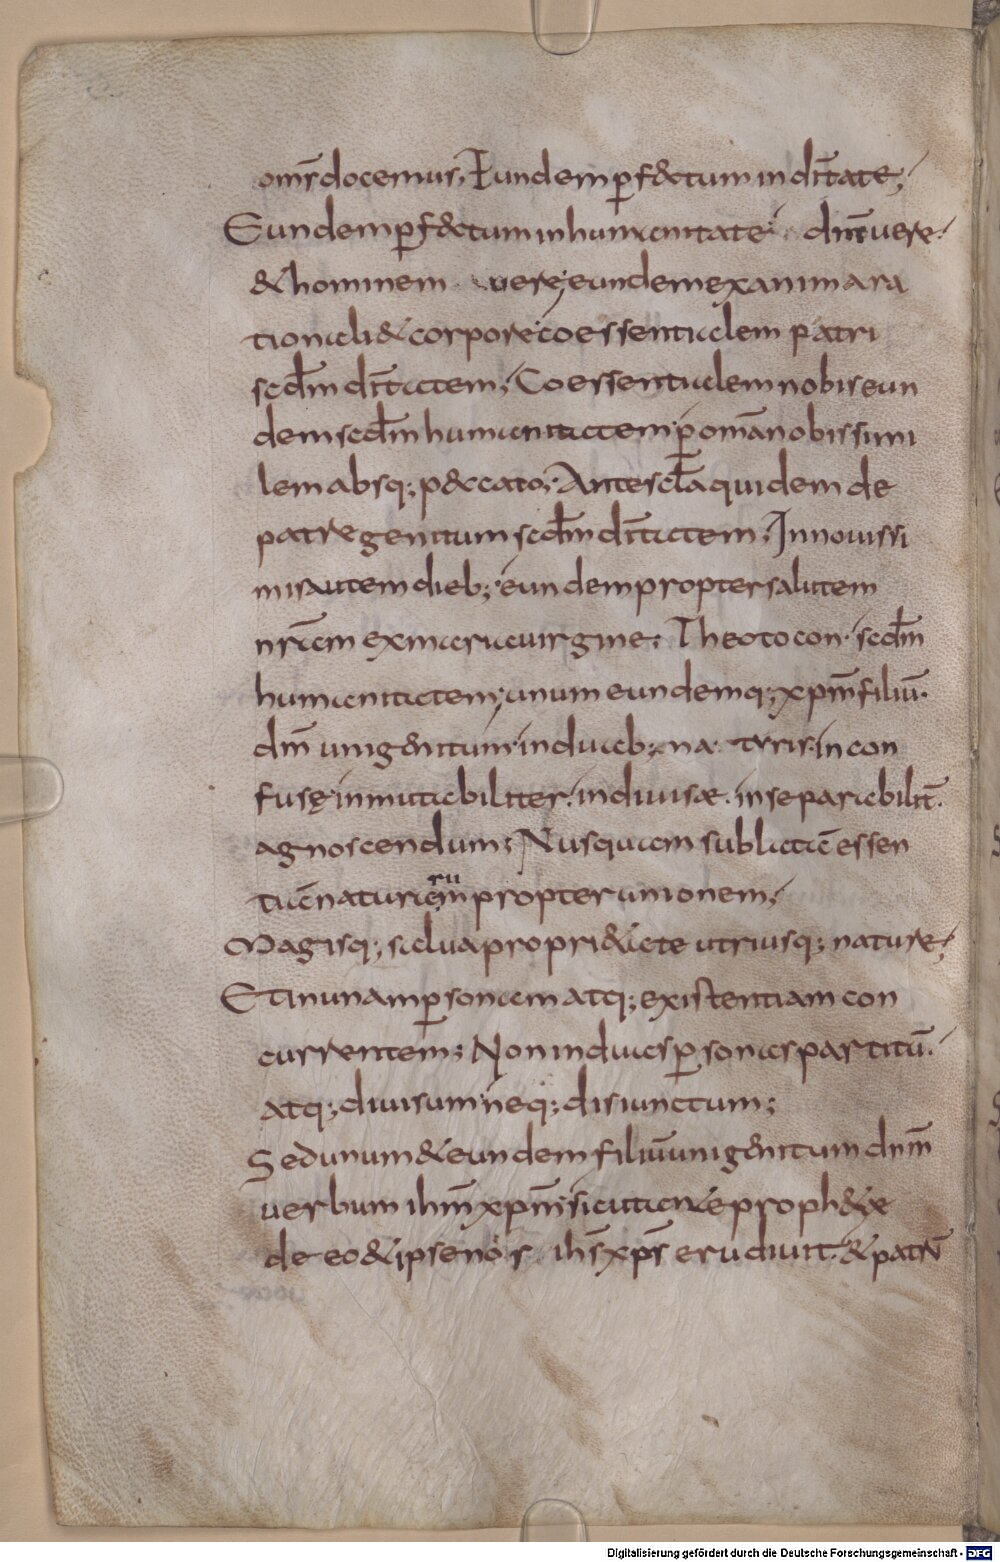 om̅s docemus, Eundem ꝑf&ctum in dei̅tate;
Eundem ꝑf&ctum in humanitate; dm̅ vere.
& hominem vere; eundem ex anima ra
tionali & corpore coessentialem patri
scdm̅ dei̅tatem; Coessentialem nobis eun
dem scdm̅ humanitatem ꝑ oma̅ nobis simi
lem absq; p&ccato; Ante sc̅la quidem de
patre genitum scdm̅ dei̅tatem; In novissi
mis autem dieb; eundem propter salutem
nr̅am ex maria virgine. Theotocon. scdm̅
humanitatem; unum eundemq; xpm̅ filiu̅.
dm̅ unigenitum. in duab; na turis. incon
fusę inmutabiliter. indivisæ. inseparabilit̅.
agnoscendum; Nusquam sublata̅ essen
tia̅ naturarum propter unionem;
Magisq; salva propri&ate utriusq; nature;
Et in unam ꝑsonam atq; existentiam con
currentem; Non in duas ꝑsonas partitu̅.
atq; divisum neq; disiunctum;
Sed unum & eundem filiu̅ unigenitum dnm̅
verbum ihm̅ xpm̅; sicut ante proph&ę
de eo & ipse nos ihs̅ xps̅ erudivit. & patru̅
Digitalisierung gefördert durch die Deutsche Forschungsgemeinschaft - DFG